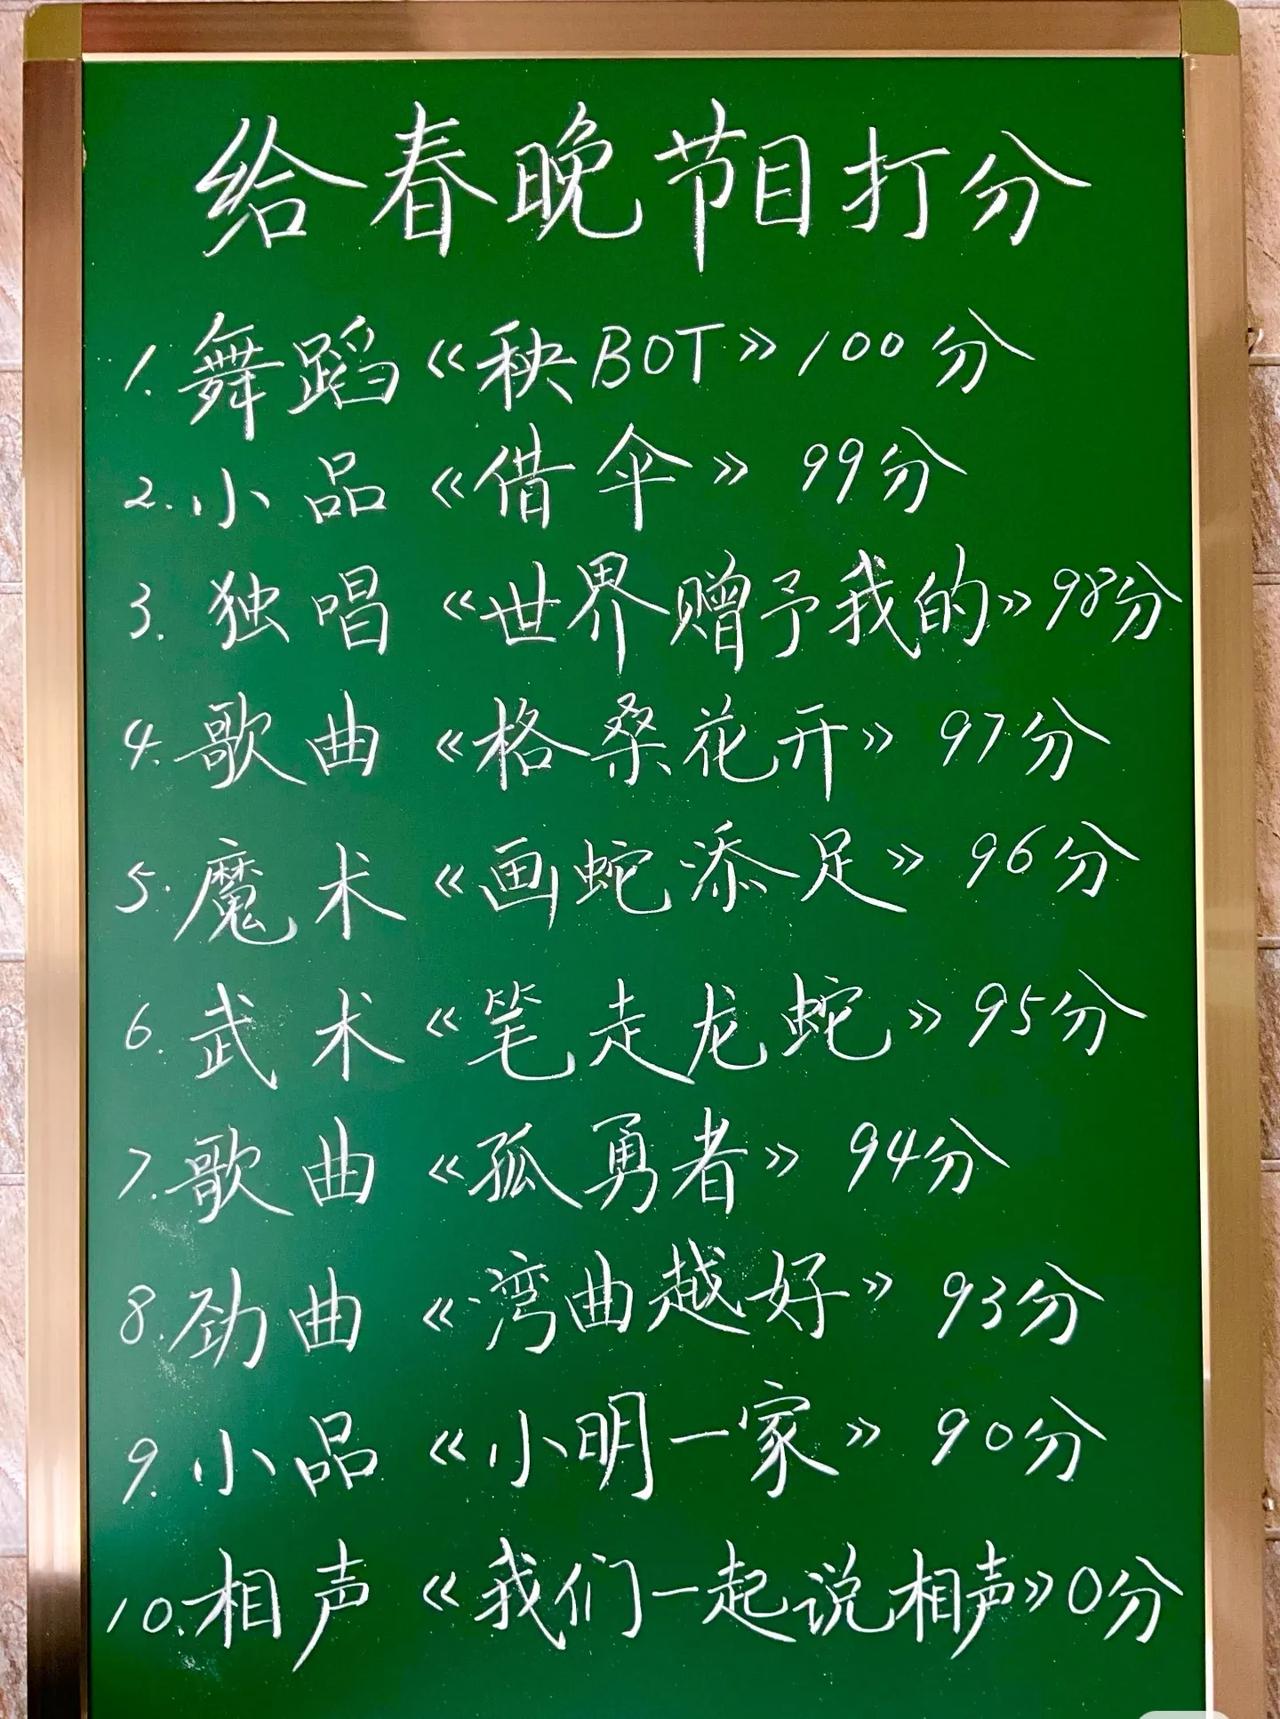 给春晚节目打分
1. 舞蹈《秧BOT》100分
2. 小品《借伞》99分
3. 独唱《世界赠予我的》98分
4. 歌曲《格桑花开》97分
5. 魔术《画蛇添足》96分
6. 武术《笔走龙蛇》95分
7. 歌曲《孤勇者》94分
8. 劲曲《湾曲越好》93分
9. 小品《小明一家》90分
10. 相声《我们一起说相声》0分